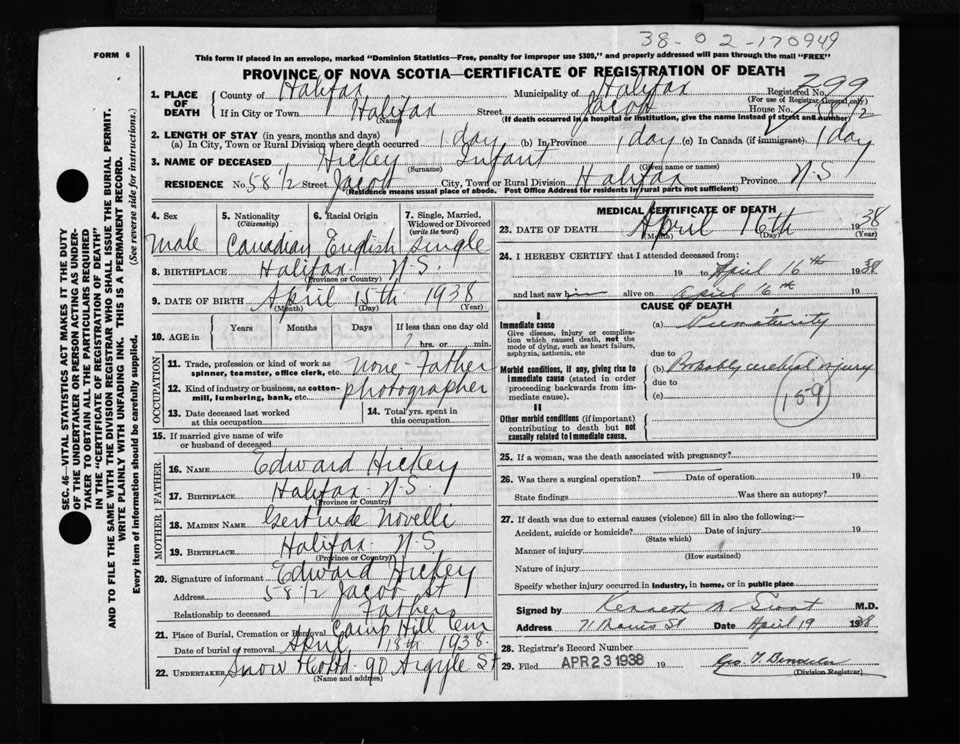 38-02-170949
FORM 6
This form if placed in an envelope, marked "Dominion Statistics—Free, penalty for improper use $300," and properly addressed will pass through the mail "FREE"
PROVINCE OF NOVA SCOTIA—CERTIFICATE OF REGISTRATION OF DEATH
1. PLACE OF DEATH County of Halifax Municipality of Halifax Registered No. 299
(For use of Registrar General only)
If in City or Town Halifax Street Jacob House No. 58 1/2
(Name) (If death occurred in a hospital or institution, give the name instead of street and number)
2. LENGTH OF STAY (in years, months and days)
(a) In City, Town or Rural Division where death occurred 1 day (b) In Province 1 day (c) In Canada (if immigrant) 1 day
3. NAME OF DECEASED Hickey Infant
(Surname) (Given name or names)
RESIDENCE No. 58 1/2 Street Jacob City, Town or Rural Division Halifax Province N.S
(Residence means usual place of abode. Post Office Address for residents in rural parts not sufficient)
4. Sex Male
5. Nationality (Citizenship) Canadian
6. Racial Origin English
7. Single, Married, Widowed or Divorced (write the word) Single
8. BIRTHPLACE Halifax N.S.
(Province or Country)
9. DATE OF BIRTH April 15th 1938
(Month) (Day) (Year)
10. AGE in Years Months Days If less than one day old
hrs. or min.
OCCUPATION
11. Trade, profession or kind of work as spinner, teamster, office clerk, etc. none - Father
12. Kind of industry or business, as cotton-mill, lumbering, bank, etc. photographer
13. Date deceased last worked at this occupation
14. Total yrs. spent in this occupation
15. If married give name of wife or husband of deceased
FATHER
16. NAME Edward Hickey
17. BIRTHPLACE Halifax N.S.
(Province or Country)
MOTHER
18. MAIDEN NAME Gertrude Novelli
19. BIRTHPLACE Halifax N.S
(Province or Country)
20. Signature of informant Edward Hickey
Address 58 1/2 Jacob St
Relationship to deceased Father
21. Place of Burial, Cremation or Removal Camp Hill Cem
Date of burial or removal April 18th 1938.
22. UNDERTAKER Snow 90 Argyle St
(Name and address)
MEDICAL CERTIFICATE OF DEATH
23. DATE OF DEATH April 16th 1938
(Month) (Day) (Year)
24. I HEREBY CERTIFY that I attended deceased from:
19 to April 16th 1938
and last saw him alive on April 16th 19
CAUSE OF DEATH
I
Immediate cause (a) Prematurity
Give disease, injury or complication which caused death, not the mode of dying, such as heart failure, asphyxia, asthenia, etc
due to
Morbid conditions, if any, giving rise to immediate cause (stated in order proceeding backwards from immediate cause).
(b) Probably cerebral injury
due to
(c)
159
II
Other morbid conditions (if important) contributing to death but not causally related to immediate cause.
25. If a woman, was the death associated with pregnancy?
26. Was there a surgical operation? Date of operation 19
State findings Was there an autopsy?
27. If death was due to external causes (violence) fill in also the following:—
Accident, suicide or homicide? Date of injury 19
(State which)
Manner of injury
(How sustained)
Nature of injury
Specify whether injury occurred in industry, in home, or in public place
Signed by Kenneth M Grant M.D.
Address 71 Morris St Date April 19 1938
28. Registrar's Record Number
29. Filed APR 23 1938 19
(Division Registrar)
SEC. 46—VITAL STATISTICS ACT MAKES IT THE DUTY
OF THE UNDERTAKER OR PERSON ACTING AS UNDER-
TAKER TO OBTAIN ALL THE PARTICULARS REQUIRED
IN THE "CERTIFICATE OF REGISTRATION OF DEATH"
AND TO FILE THE SAME WITH THE DIVISION REGISTRAR WHO SHALL ISSUE THE BURIAL PERMIT.
WRITE PLAINLY WITH UNFADING INK. THIS IS A PERMANENT RECORD.
Every item of information should be carefully supplied. (See reverse side for instructions.)